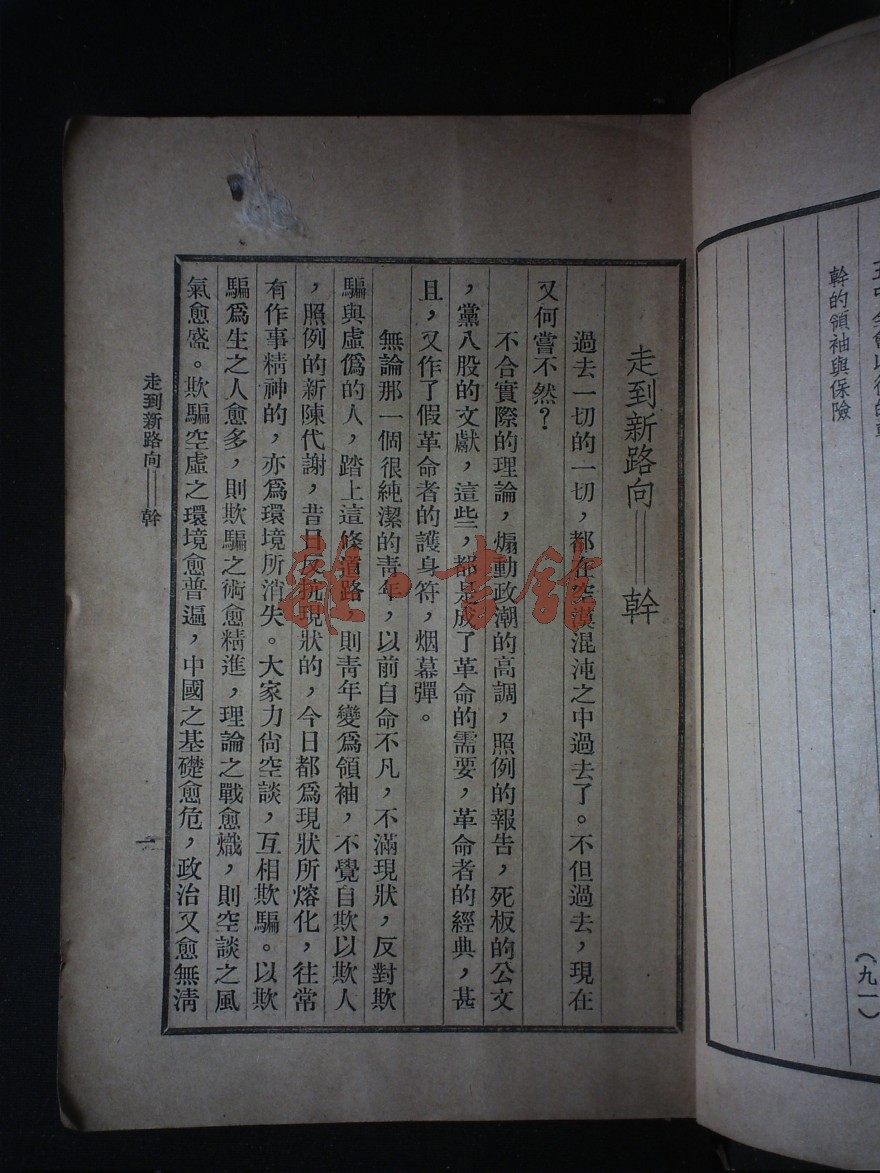 幹的領袖與保險
(九一)
走到新路向——幹
過去一切的一切，都在空漠混沌之中過去了。不但過去，現在
又何嘗不然？
不合實際的理論，煽動政潮的高調，照例的報告，死板的公文
，黨八股的文獻，這些，都是成了革命的需要，革命者的經典，甚
且，又作了假革命者的護身符，烟幕彈。
無論那一個很純潔的靑年，以前自命不凡，不滿現狀，反對欺
騙與虛僞的人，踏上這條道路，則靑年變爲領袖，不覺自欺以欺人
，照例的新陳代謝，昔日反抗現狀的，今日都爲現狀所熔化，往常
有作事精神的，亦爲環境所消失。大家力尙空談，互相欺騙。以欺
騙爲生之人愈多，則欺騙之術愈精進，理論之戰愈熾，則空談之風
氣愈盛。欺騙空虛之環境愈普遍，中國之基礎愈危，政治又愈無淸
走到新路向——幹
一
雜·書館